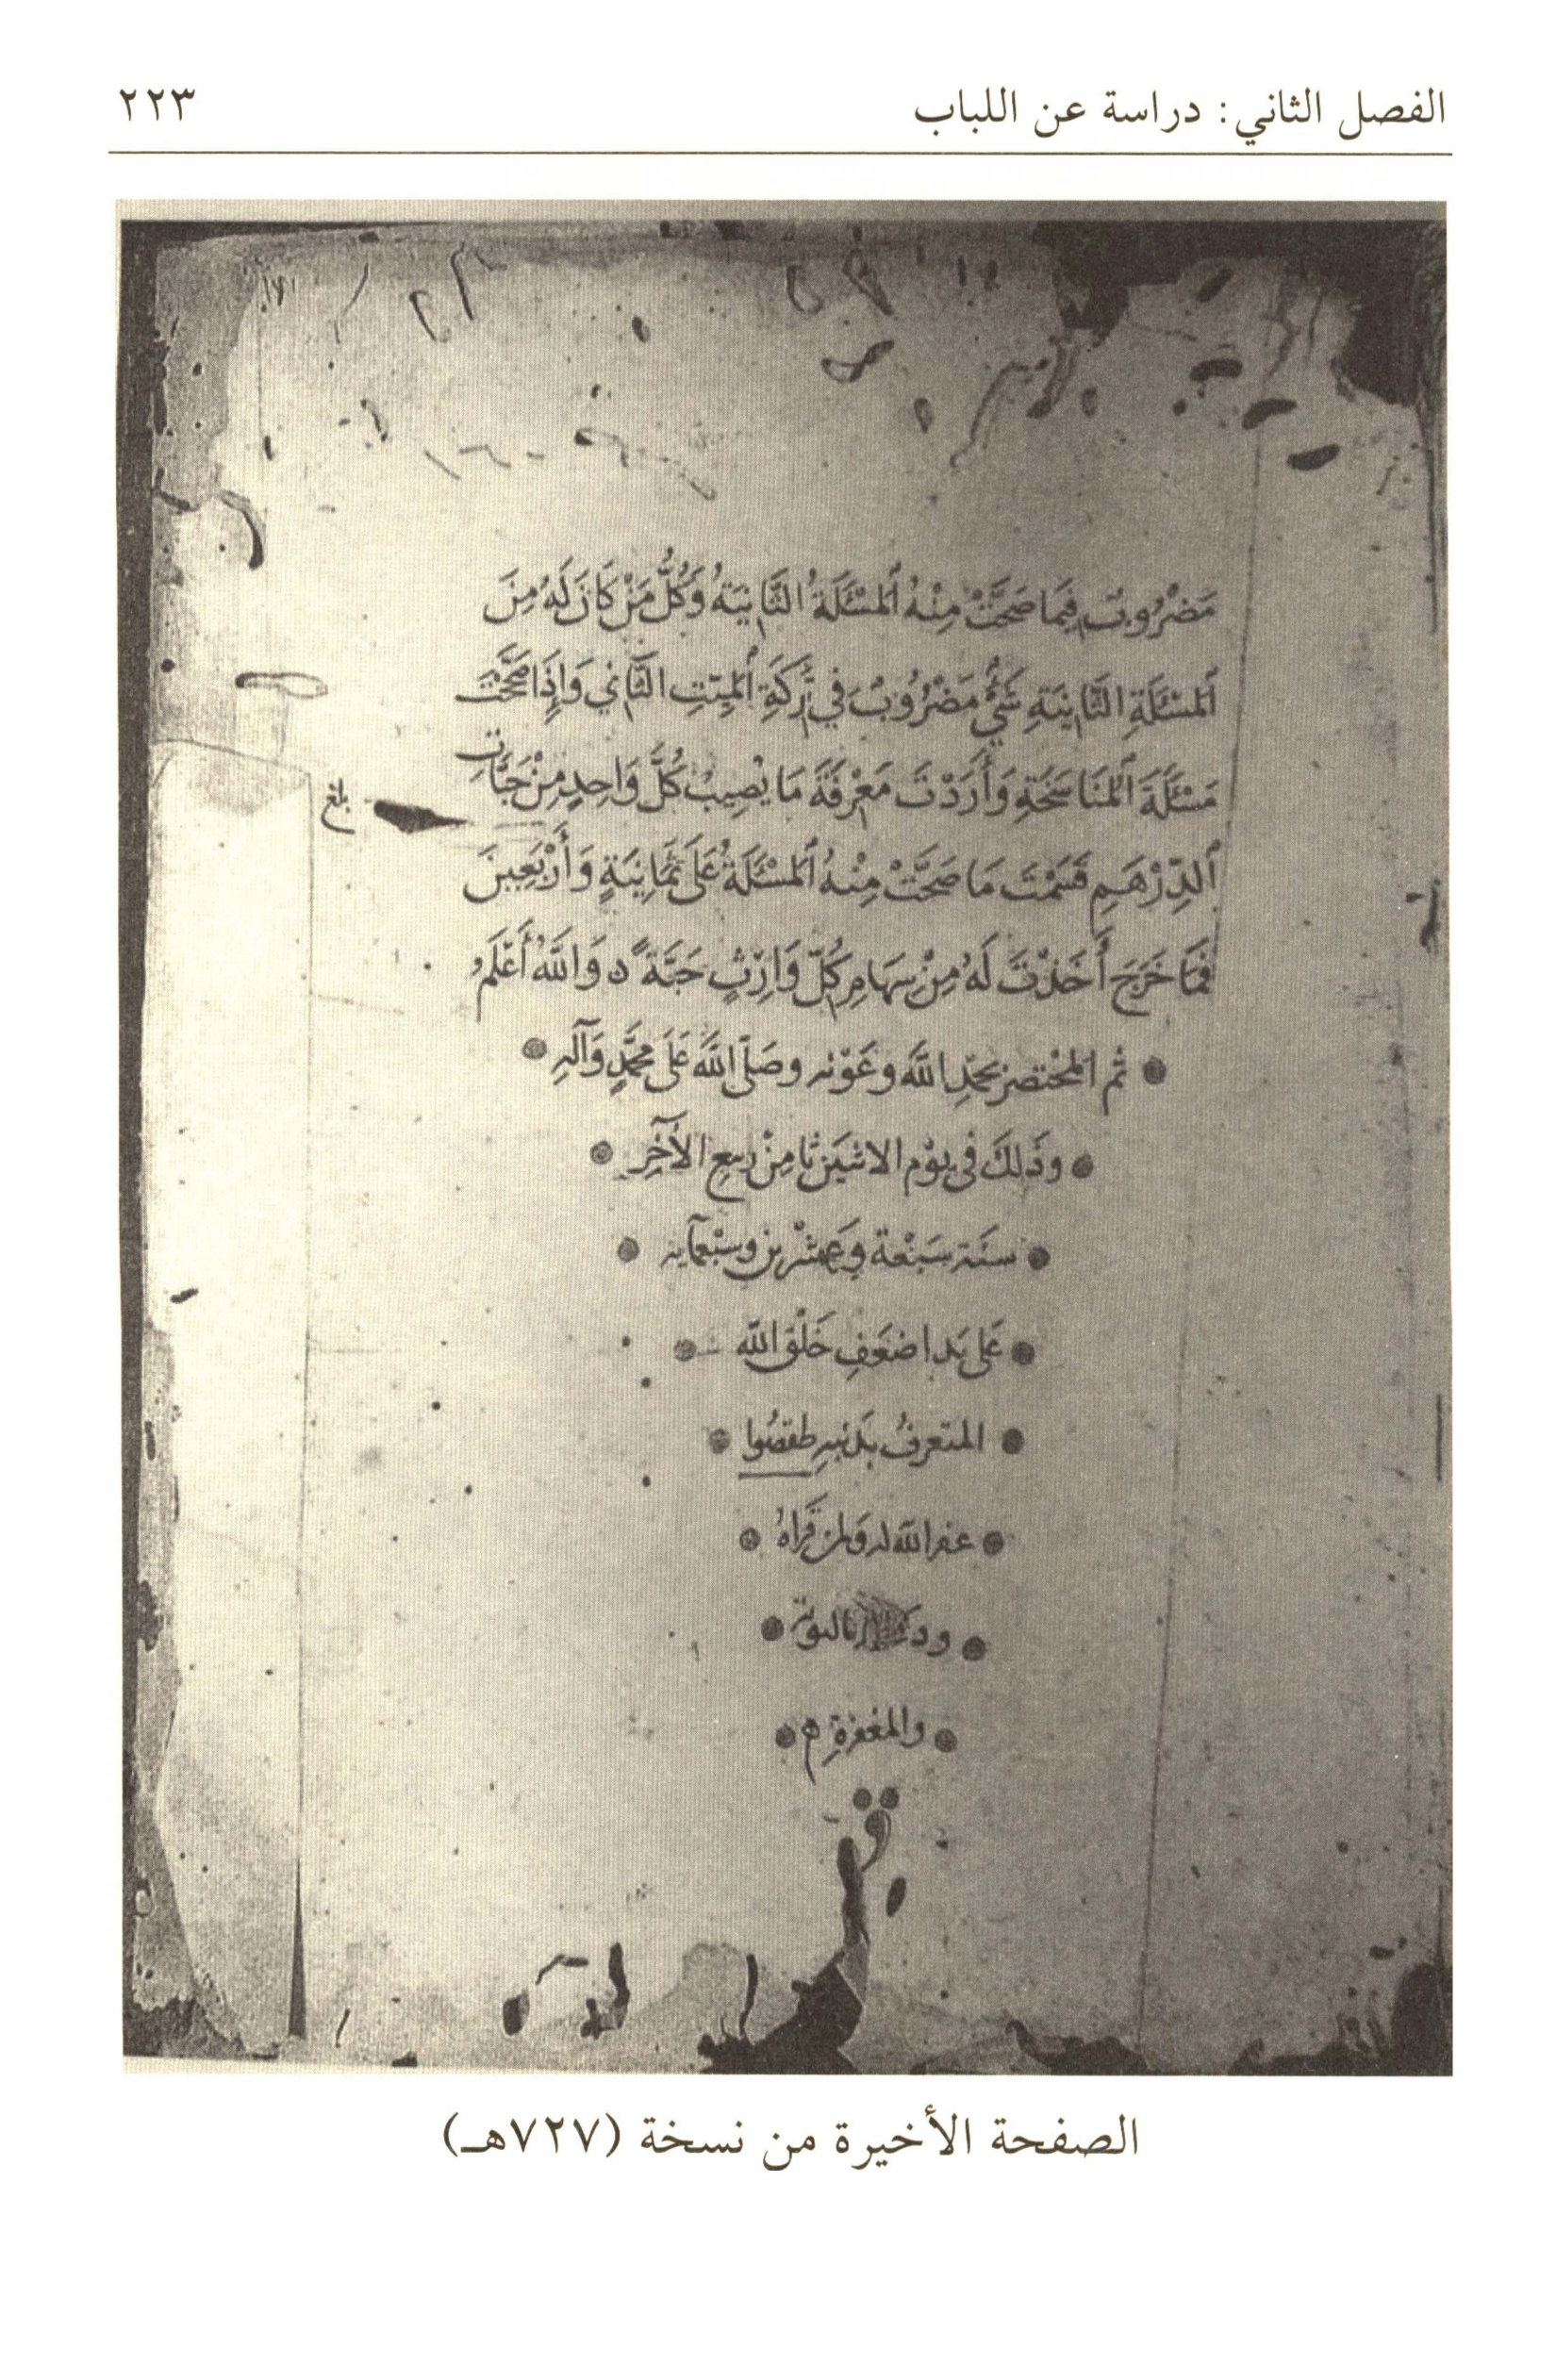 الفصل الثاني: دراسة عن اللباب ٢٢٣
مَضْرُوبٌ فِيمَا صَحَّتْ مِنْهُ ٱلْمَسْئَلَةُ الثَّانِيَةُ وَكُلُّ مَنْ كَانَ لَهُ مِنَ
ٱلْمَسْئَلَةِ الثَّانِيَةِ شَيْءٌ مَضْرُوبٌ فِي تَرِكَةِ ٱلْمَيِّتِ الثَّانِي وَإِذَا صَحَّحْتَ
مَسْئَلَةَ ٱلْمُنَاسَخَةِ وَأَرَدْتَ مَعْرِفَةَ مَا يُصِيبُ كُلَّ وَاحِدٍ مِنْ حَبَّاتِ
بلغ
ٱلدِّرْهَمِ قَسَمْتَ مَا صَحَّتْ مِنْهُ ٱلْمَسْئَلَةُ عَلَى ثَمَانِيَةٍ وَأَرْبَعِينَ
فَمَا خَرَجَ أَخَذْتَ لَهُ مِنْ سِهَامِ كُلِّ وَارِثٍ حَبَّةً وَاللَّهُ أَعْلَمُ
ثم المختصر بحمدِ اللَّه وعَوْنه وصَلَّى اللَّه عَلَى محمَّدٍ وَآلهِ
وَذَلكَ في يوْم الاثنَين ثامِنْ ربيع الآخِرِ
سنَة سَبْعَة وَعِشْرين وسبْعمايه
عَلى يَد اضعَفِ خَلْق الله
المتعرفُ بكَنْيهِ طقصُوا
غفر الله له وَلمن قَرَاهُ
بالتوبة
والمغفرةِ
الصفحة الأخيرة من نسخة (٧٢٧هـ)